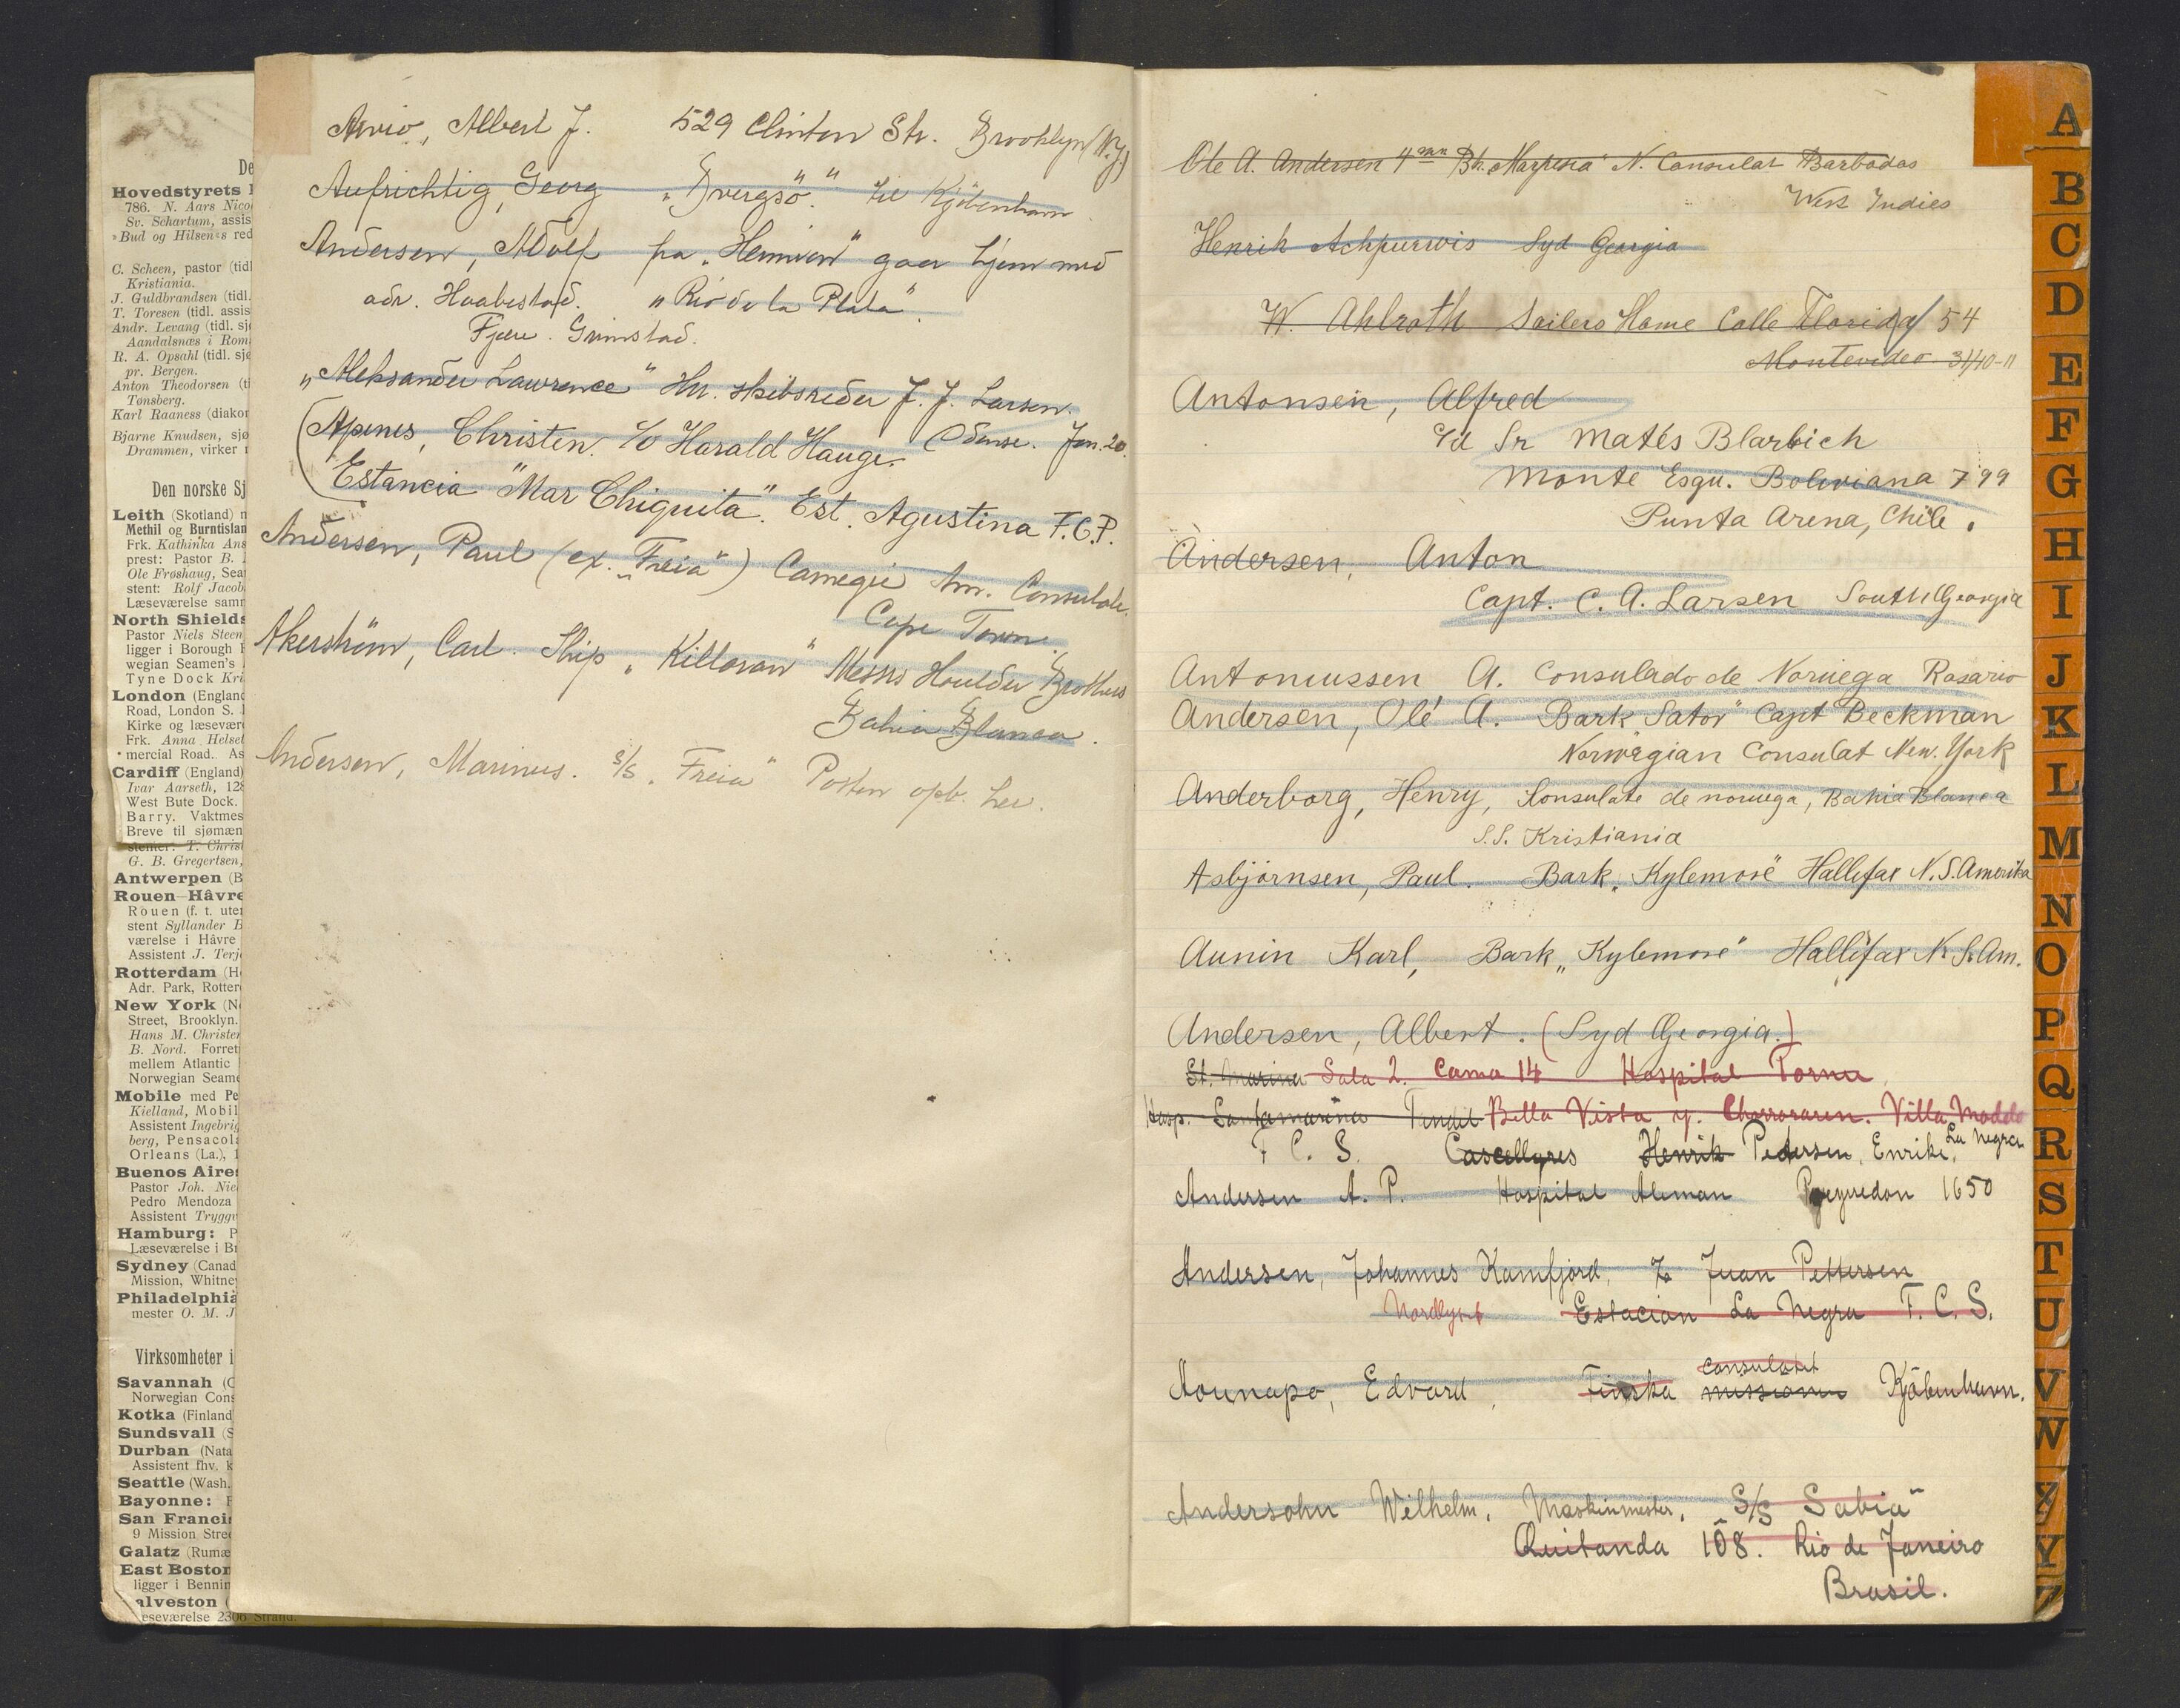 De
Hovedstyrets
786. N. Aars Nico
Sv. Schartum, assis
Bud og Hilsen«s red
C. Scheen, pastor (tidl
Kristiania.
J. Guldbrandsen (tidl.
T. Toresen (tidl. assis
Andr. Levang (tidl. sjø
Aandalsnæs i Rom
R. A. Opsahl (tidl. sjø
pr. Bergen.
Anton Theodorsen (ti
Tønsberg.
Karl Raaness (diakon
Bjarne Knudsen, sjø
Drammen, virker
Den norske Sj
Leith (Skotland)
Methil og Burntislan
Frk. Kathinka Ans
prest: Pastor B.
Ole Frøshaug, Sea
stent: Rolf Jacob
Læseværelse samt
North Shields
Pastor Niels Steen
ligger i Borough
wegian Seamen's
Tyne Dock Kri
London (England
Road, London S.
Kirke og læsevær
Frk. Anna Helset
mercial Road. As
Cardiff (England)
Ivar Aarseth, 128
West Bute Dock.
Barry. Vaktmes
Breve til sjømæn
stenter: T. Christ
G. B. Gregertsen,
Antwerpen (B
Rouen-Hâvre
Rouen (f. t. uten
stent Syllander B
værelse i Hâvre
Assistent J. Terj
Rotterdam (H
Adr. Park, Rotter
New York (N
Street, Brooklyn.
Hans M. Christen
B. Nord. Forret
mellem Atlantic
Norwegian Seame
Mobile med Pe
Kielland, Mobil
Assistent Ingebrig
berg, Pensacola
Orleans (La.), 1
Buenos Aires
Pastor Joh. Nie
Pedro Mendoza
Assistent Tryggv
Hamburg: P
Læseværelse i B
Sydney (Canad
Mission, Whitney
Philadelphia
mester O. M. J
Virksomheter i
Savannah (G
Norwegian Cons
Kotka (Finland
Sundsvall (S
Durban (Nata
Assistent fhv. k
Seattle (Wash.
Bayonne: F
San Francis
9 Mission Stree
Galatz (Rumæ
East Boston
ligger i Bennin
alveston (
eseværelse 2306 Strand.
Arvio, Albert J. 529 Clinton Str. Brooklyn (N.Y.)
Aufrichtig, Georg "Dvergsö" til Kjöbenhavn
Andersen, Adolf fra "Heimen" gaar hjem med
adr. Haabestad. "Rio de la Plata"
Fjære. Grimstad.
"Aleksander Lawrence" Hr. skibsreder J. J. Larsen.
Odense. Jan. 20.
(Apenes, Christen. c/o Harald Hauge.
Estancia "Mar Chiquita". Est. Agustina F.C.P.
Andersen, Paul (ex. "Freia") Carnegie Am. Consulate.
Cape Town.
Akerström, Carl. Ship "Killoran" Messrs Houlder Brothers
Bahia Blanca.
Andersen, Marinus. s/s "Freia" Posten opb. her.
Ole A. Andersen 4mn Bk. "Marpesia" N. Consulat Barbados
West Indies
Henrik Achpurvis Syd Georgia
W. Ahlroth Sailers Home Calle Florida 54
Montevideo 31/10-11
Antonsen, Alfred
c/d Sr Matés Blarbich
Monte Esqu. Boliviana 799
Punta Arena, Chile.
Andersen, Anton
Capt. C. A. Larsen South Georgia
Antonussen A. Consulado de Noruega Rosario
Andersen, Olé A. Bark "Sator" Capt Beckman
Norwegian Consulat New. York
Anderborg, Henry, Konsulate de noruega, Bahia Blanca
S.S. Kristiania
Asbjörnsen, Paul. Bark "Kylemore" Hallifax N.S. Amerika
Aunin Karl, Bark "Kylemore" Hallifax N.S. Am.
Andersen, Albert. (Syd Georgia.)
St. Marina Sala 2. Cama 14 Hospital Tornu
Hosp. Santamarina Tandil Bella Vista y. Charroraren. Villa Maddo
F. C. S. Cascallares Henrik Pedersen, Enrike, La Negra
Andersen A. P. Hospital Aleman Pueyuedon 1650
Andersen, Johannes Kamfjord, c/o Juan Pettersen
Nordlyset Estacion La Negra F. C. S.
consulatet
Aounapo, Edvard, Finska missionen Kjöbenhavn.
Andersohn Wilhelm, Maskinmester, S/S "Sabia"
Quitanda 108. Rio de Janeiro
Brasil.
A
B
C
D
E
F
G
H
I
J
K
L
M
N
O
P
Q
R
S
T
U
V
W
X
Y
Z